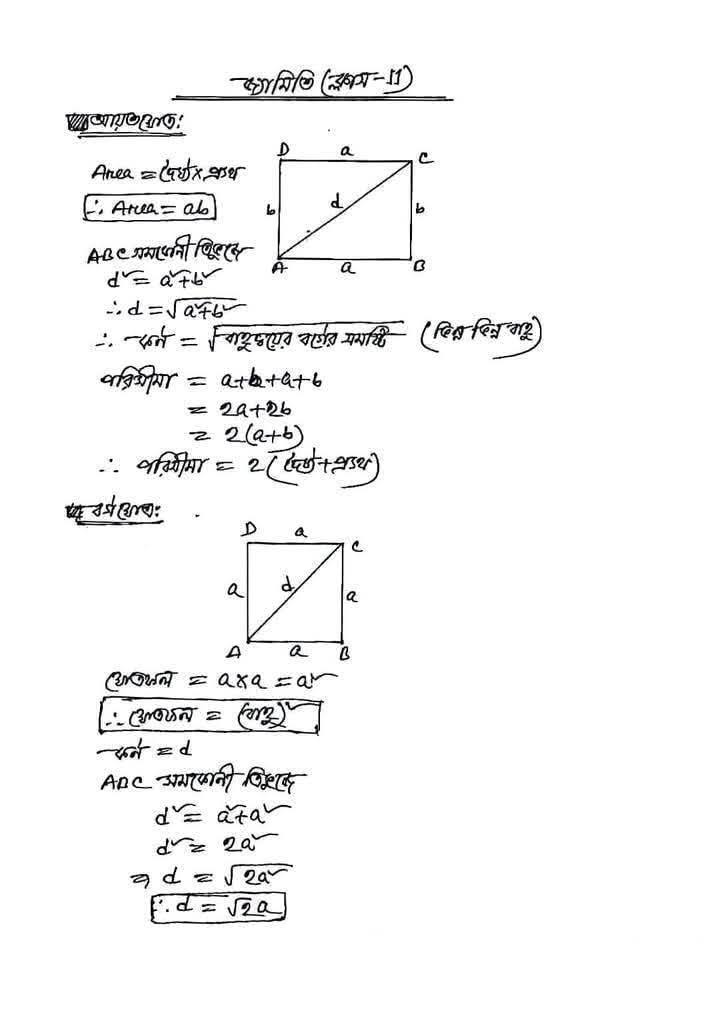 জ্যামিতি (ক্লাস-11)
আয়তক্ষেত্র:
D a C
Area = দৈর্ঘ্য × প্রস্থ
d
∴ Area = ab
b b
ABC সমকোনী ত্রিভুজে
A a B
d² = a²+b²
∴ d = √a²+b²
∴ কর্ন = √বাহুদ্বয়ের বর্গের সমষ্টি (ভিন্ন ভিন্ন বাহু)
পরিসীমা = a+b+a+b
= 2a+2b
= 2(a+b)
∴ পরিসীমা = 2(দৈর্ঘ্য+প্রস্থ)
বর্গক্ষেত্র:
D a C
a d a
A a B
ক্ষেত্রফল = a×a = a²
∴ ক্ষেত্রফল = (বাহু)²
কর্ন = d
ABC সমকোনী ত্রিভুজে
d² = a²+a²
d² = 2a²
⇒ d = √2a²
∴ d = √2a